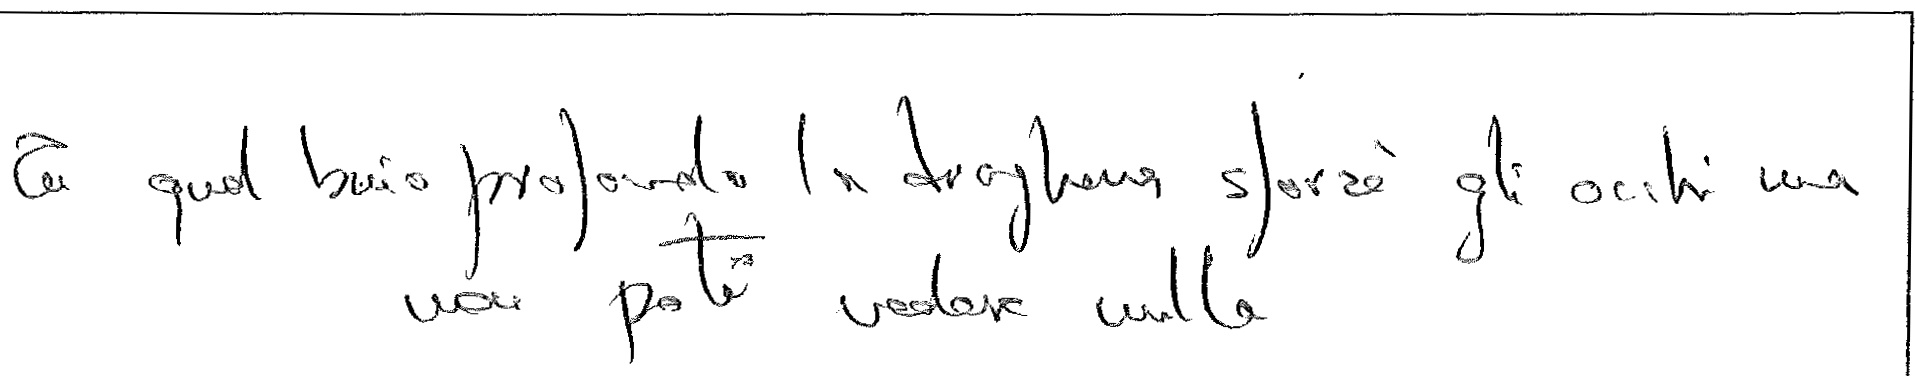 In quel buio profondo la draghena sforzò gli occhi ma
non potè vedere nulla